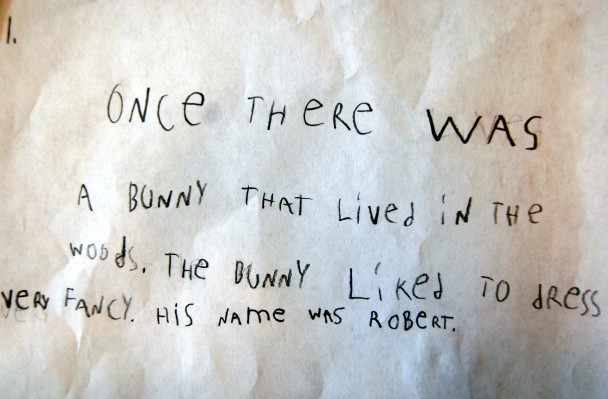 1.
ONCe THeRe WAS
A BUNNY THAT Lived iN THe
woods. THe BUNNY Liked TO dRess
VeRY FANCY. His NAme wAs RoBeRT.